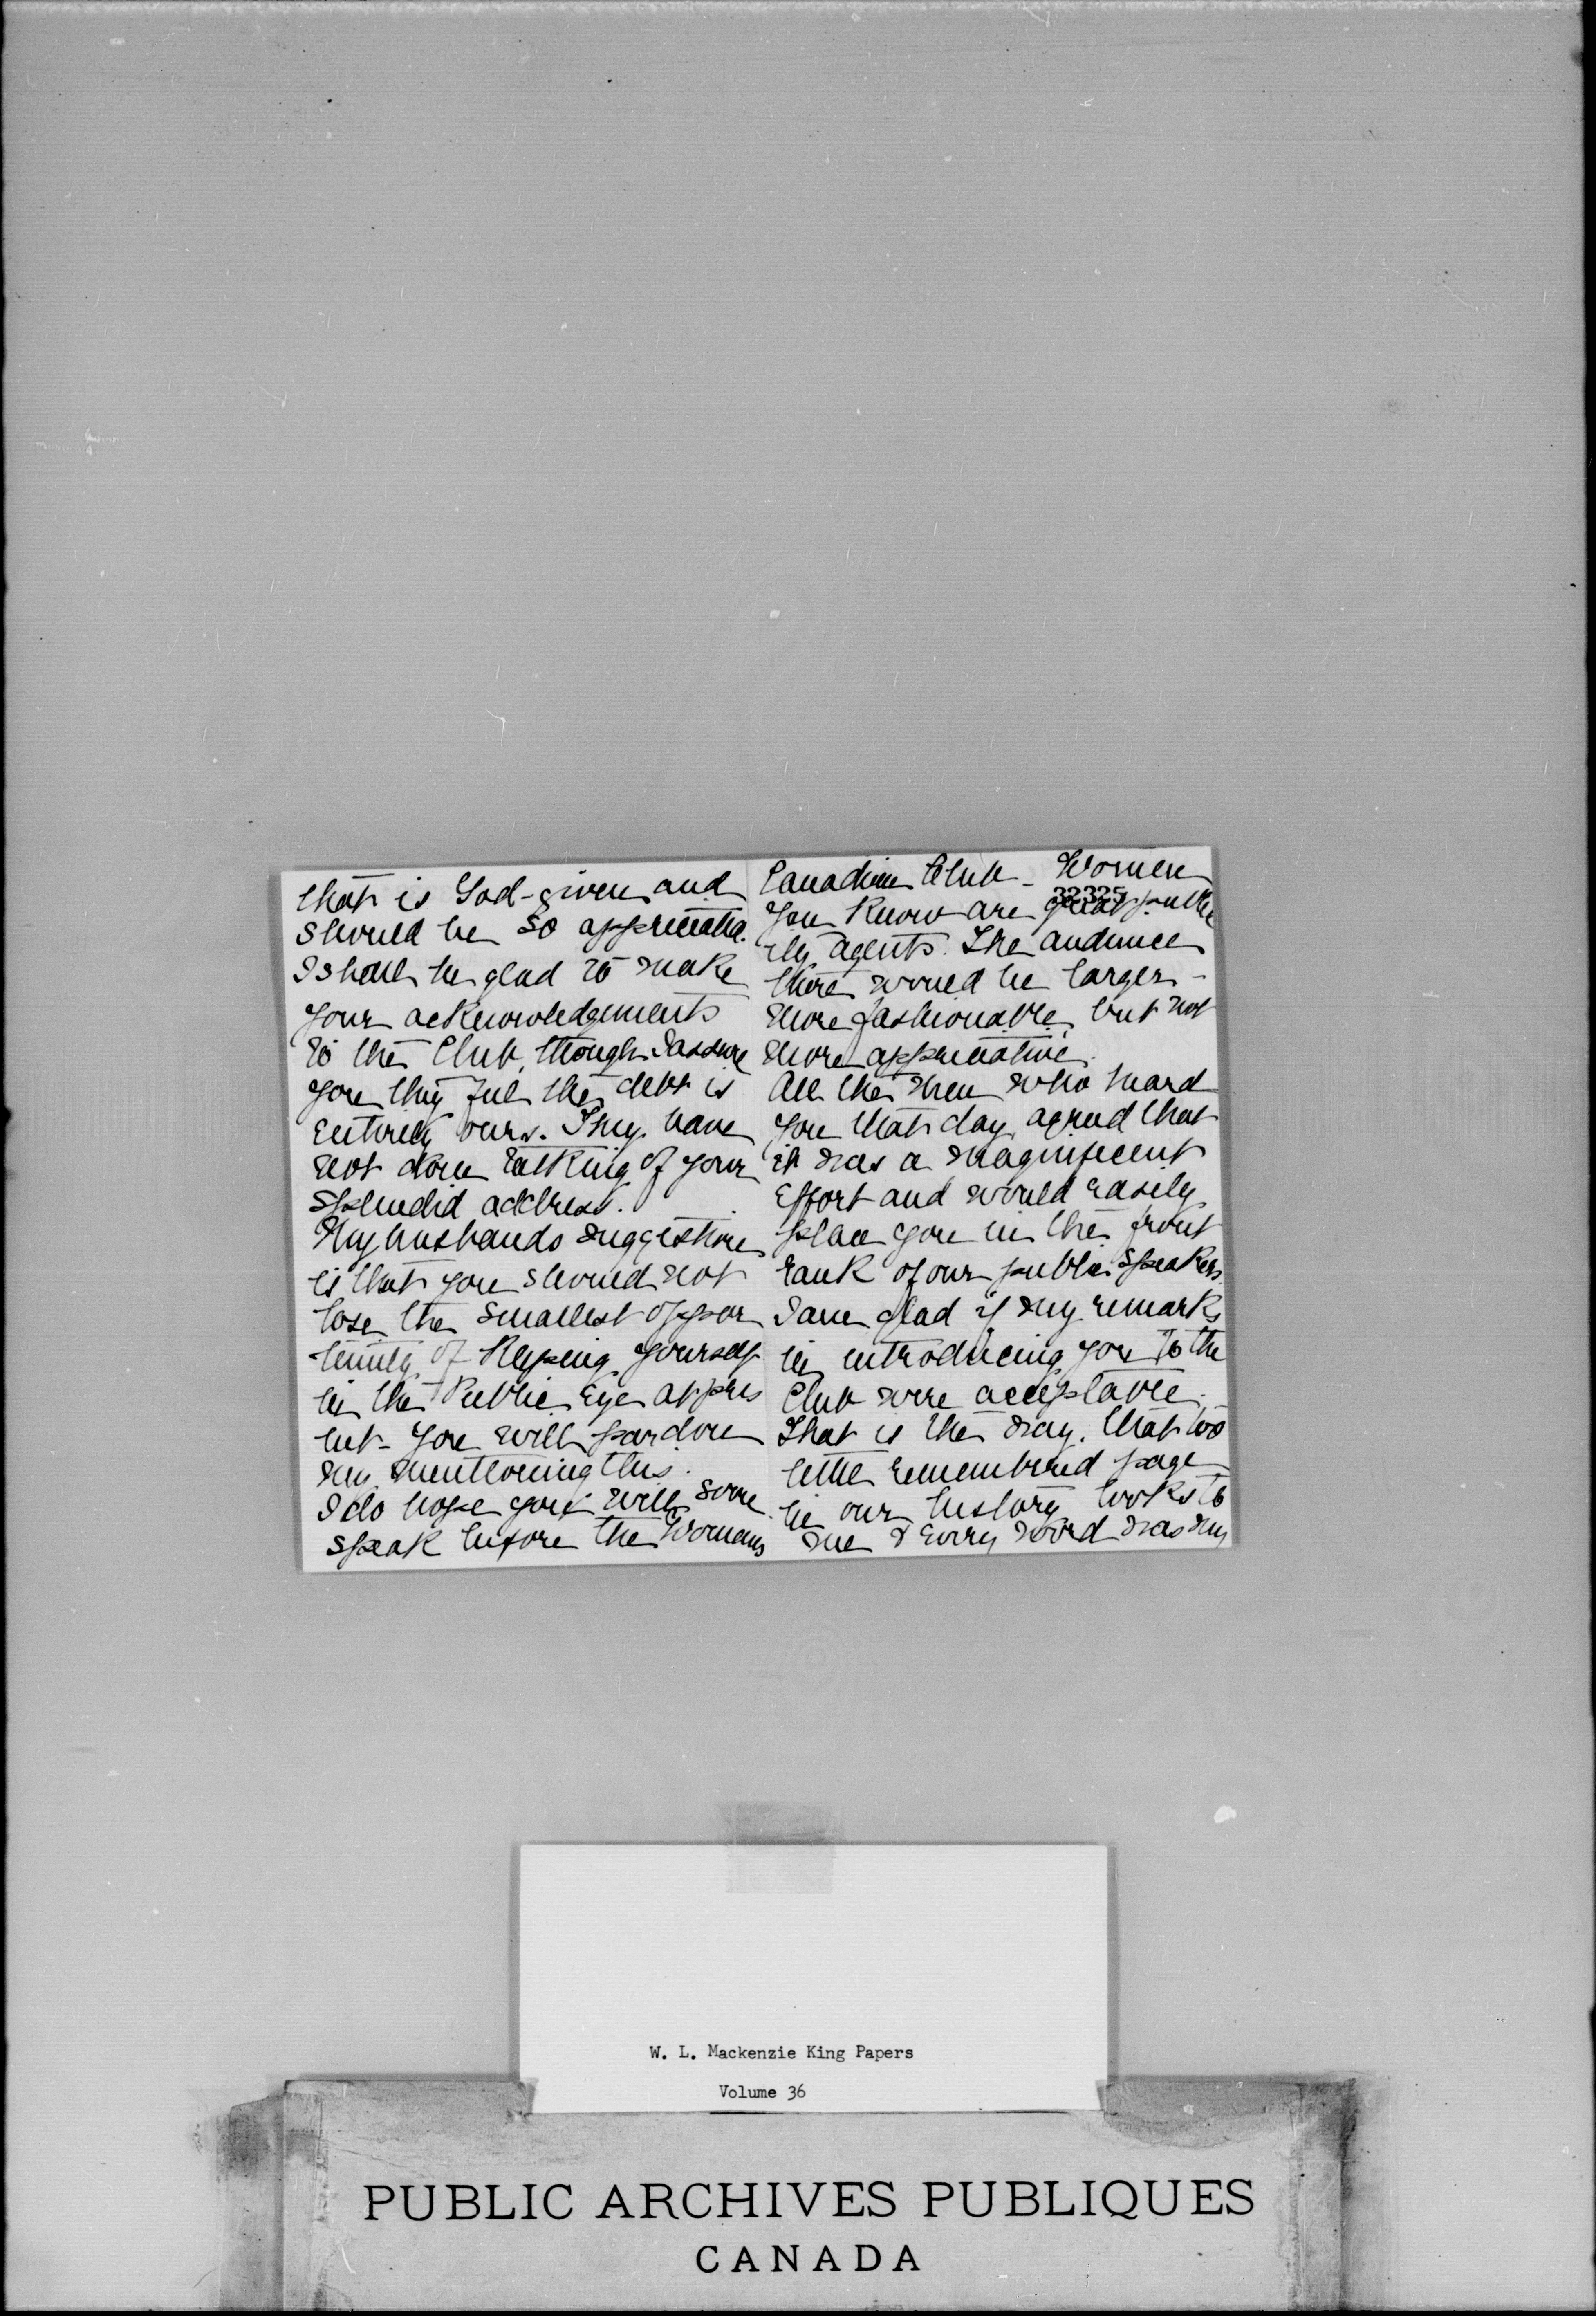 that is God-given and
should be so appreciated.
I shall be glad to make
your acknowledgements
to the Club, though I assure
you they feel the debt is
entirely ours. They have
not done talking of your
splendid address.
My husbands suggestion
is that you should not
lose the smallest oppor
tunity of keeping yourself
in the Public Eye at pres
ent - you will pardon
my mentioning this.
I do hope you will soon
speak before the Womans
Canadian Club - Women
32325
you know are great public
ity agents. The audience
there would be larger -
more fashionable, but not
more appreciative.
All the men who heard
you that day, agreed that
it was a magnificent
effort and would easily
place you in the front
rank of our public speakers.
I am glad if my remarks
in introducing you to the
Club were acceptable.
That is the way. that too
little remembered page
in our history looks to
me & every word was my
W. L. Mackenzie King Papers
Volume 36
PUBLIC ARCHIVES PUBLIQUES
CANADA